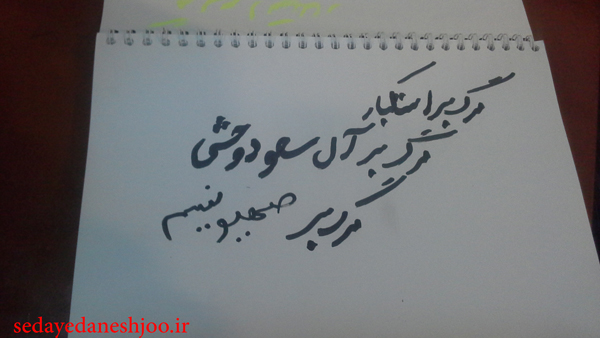 مرگ بر استکبار
مرگ بر آل سعود وحشی
مرگ بر صهیونیسم
sedayedaneshjoo.ir